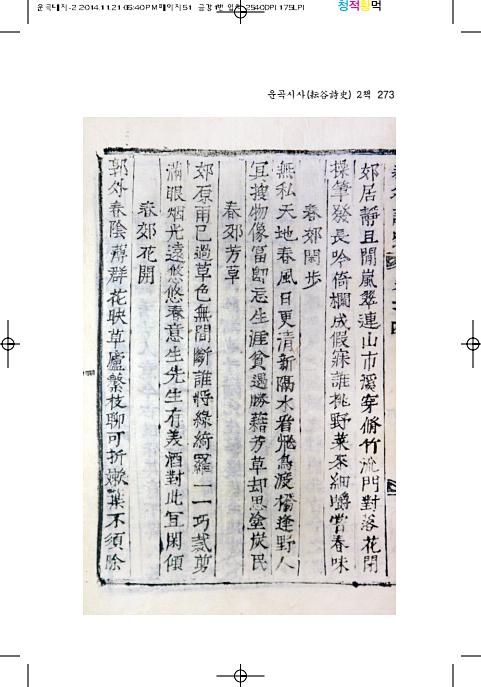 운곡시사(耘谷詩史) 2책 273
郊居靜且閒嵐翠連山市溪穿脩竹流門對落花開
操筆發長吟倚欄成假寐誰挑野菜來細嚼嘗春味
春郊閑步
無私天地春風日更淸新隔水看飛鳥渡橋逢野人
冥搜物像富卽忘生涯貧遇勝藉芳草却思塗炭民
春郊芳草
郊原雨已過草色無間斷誰將綠綺羅一一巧裁剪
滿眼烟光遠悠悠春意生先生有美酒對此宜閑傾
春郊花開
郭外春陰薄群花映草廬繁枝聊可折嫩葉不須除